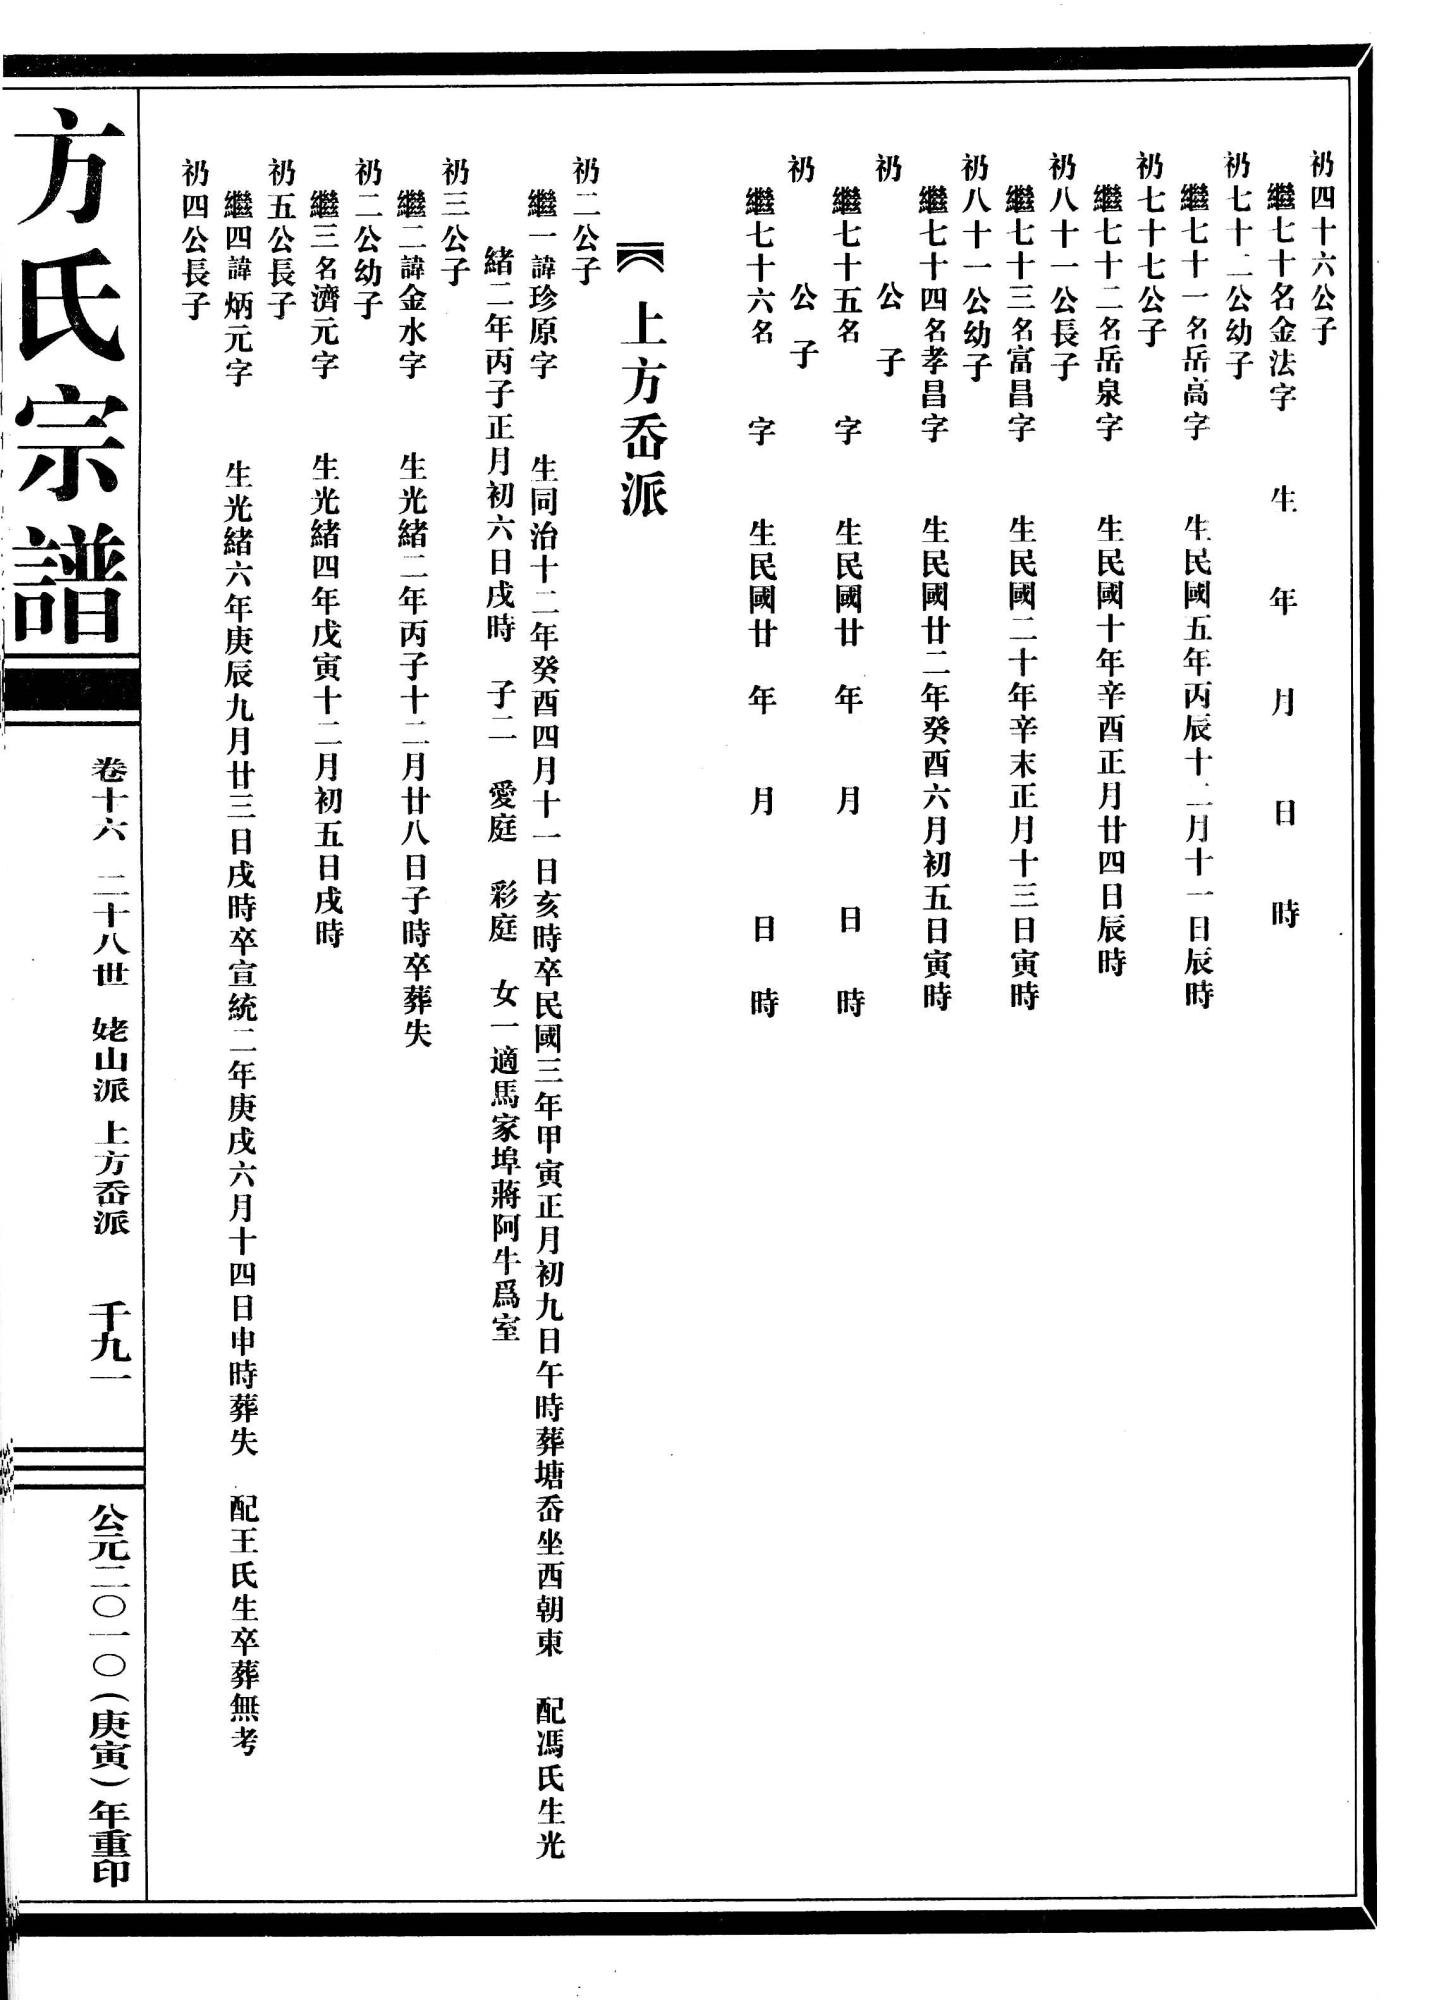 礽四十六公子
繼七十名金法字　生　年　月　日　時
礽七十二公幼子
繼七十一名岳高字　生民國五年丙辰十二月十一日辰時
礽七十七公子
繼七十二名岳泉字　生民國十年辛酉正月廿四日辰時
礽八十一公長子
繼七十三名富昌字　生民國二十年辛末正月十三日寅時
礽八十一公幼子
繼七十四名孝昌字　生民國廿二年癸酉六月初五日寅時
礽　公　子
繼七十五名　字　生民國廿　年　月　日　時
礽　公　子
繼七十六名　字　生民國廿　年　月　日　時
上方岙派
礽二公子
繼一諱珍原字　生同治十二年癸酉四月十一日亥時卒民國三年甲寅正月初九日午時葬塘岙坐西朝東　配馮氏生光
緒二年丙子正月初六日戌時　子二　愛庭　彩庭　女一適馬家埠蔣阿牛爲室
礽三公子
繼二諱金水字　生光緒二年丙子十二月廿八日子時卒葬失
礽二公幼子
繼三名濟元字　生光緒四年戊寅十二月初五日戌時
礽五公長子
繼四諱炳元字　生光緒六年庚辰九月廿三日戌時卒宣統二年庚戌六月十四日申時葬失　配王氏生卒葬無考
礽四公長子
方氏宗譜
卷十六　二十八世　姥山派　上方岙派　千九一
公元二〇一〇（庚寅）年重印